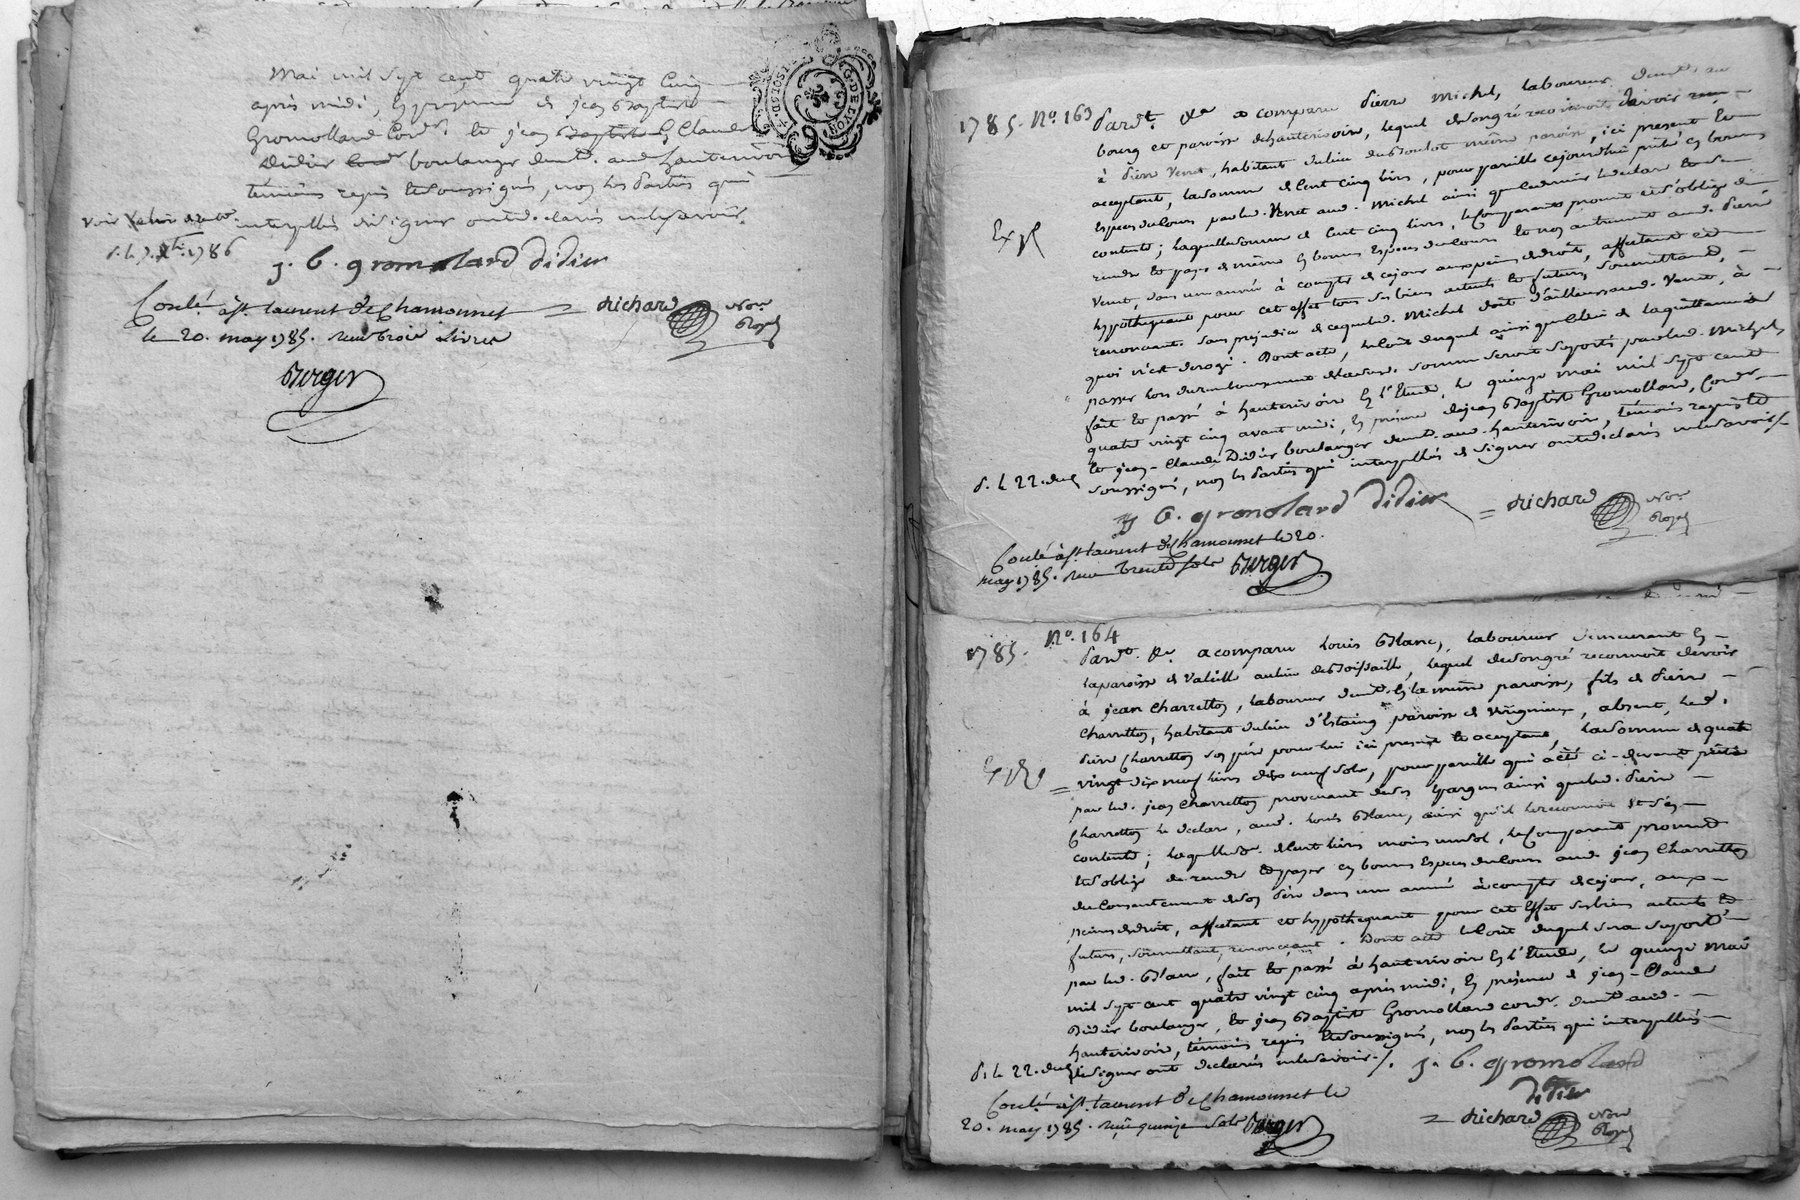 mai mil sept cent quatre vingt cinq
après midi, en presence de jean Baptiste
Gromolland Cordr. et jean Claude
Didier boulanger demt. aud. hauterivoire
témoins requis et soussignés, non les parties qui
interpellés de signer ont declarés ne le savoir.
1786
j. b. gromolard didier
Conlé à st. laurent de Chamousset = Richard Not. Royal
le 20. may 1785. reçu trois livres
Berger
G. DE LYON
1785. No. 163
Pardt. &a. a comparu pierre Michel, laboureur demt. au
bourg et paroisse dehauterivoire, lequel de son gré reconnoit devoir
à pierre Venet, habitant du lieu du même paroisse, ici present et
acceptant, la somme de cent cinq livres, pour pareille cejourd'hui prêté en bonnes
Especes du cours par led. Venet aud. Michel ainsi que ce dernier le declare et s'en
contente; laquelle somme de cent cinq livres, le Comparant promet et s'oblige de
rendre et payer de même en bonnes Especes du cours et non autrement aud. pierre
Venet, dans un année à compter de ce jour aux peines de droit, affectant et
hypothequant pour cet effet tous ses biens actuels et futurs, soumettant,
renonçant. sans prejudice de ce que led. Michel doit d'ailleurs aud. Venet, à
quoi n'est derogé. Dont acte, le coût duquel ainsi que celui de la quittance à
passer lors du remboursement de lad. somme seront suportés par led. Michel,
fait et passé à hauterivoire en l'Etude, le quinze mai mil sept cent
quatre vingt cinq avant midi, en présence de jean Baptiste Gromolland, Cordr.
et jean-Claude Didier boulanger demt. aud. hauterivoire, témoins requis et
soussignés, non les parties qui interpellés de signer ont declarés ne le savoir./.
d. le 22. dud.
j. b. gromolard didier = Richard Not. Royal
Conlé à st. laurent de Chamousset le 20.
may 1785. reçu trente sols Berger
1785. No. 164
Pardt. &a. a comparu Louis Blanc, laboureur demeurant en
la paroisse de Valeille au lieu, lequel de son gré reconnoit devoir
à jean Charretton, laboureur demt. en la même paroisse, fils de pierre
Charretton, habitant du lieu d'Estaing paroisse de Virignieux, absent, led.
pierre Charretton son père pour lui ici present et acceptant, la somme de quatre
vingt dix neuf livres dix neuf sols, pour pareille qui a été ci-devant prêtée
par led. jean Charretton provenant de ses Epargnes ainsi que led. pierre
Charretton le declare, aud. Louis Blanc, ainsi qu'il le reconnoit et s'en
contente; laquelle so. de cent livres moins un sol, le Comparant promet
et s'oblige de rendre et payer en bonnes Especes du cours aud. jean Charretton
du consentement de son père dans un année à compter de ce jour, aux
peines de droit, affectant et hypothequant pour cet effet ses biens actuels et
futurs, soumettant, renonçant. Dont acte le coût duquel sera suporté
par led. Blanc, fait et passé à hauterivoire en l'Etude, le quinze mai
mil sept cent quatre vingt cinq après midi, en présence de jean-Claude
Didier boulanger, et jean Baptiste Gromolland cordr. demt. aud.
hauterivoire, témoins requis et soussignés, non les parties qui interpellés
de signer ont declarés ne le savoir./.
d. le 22. dud.
j. b. gromolard
didier
Conlé à st. laurent de Chamousset le
20. may 1785. reçu quinze sols Berger = Richard Not. Royal